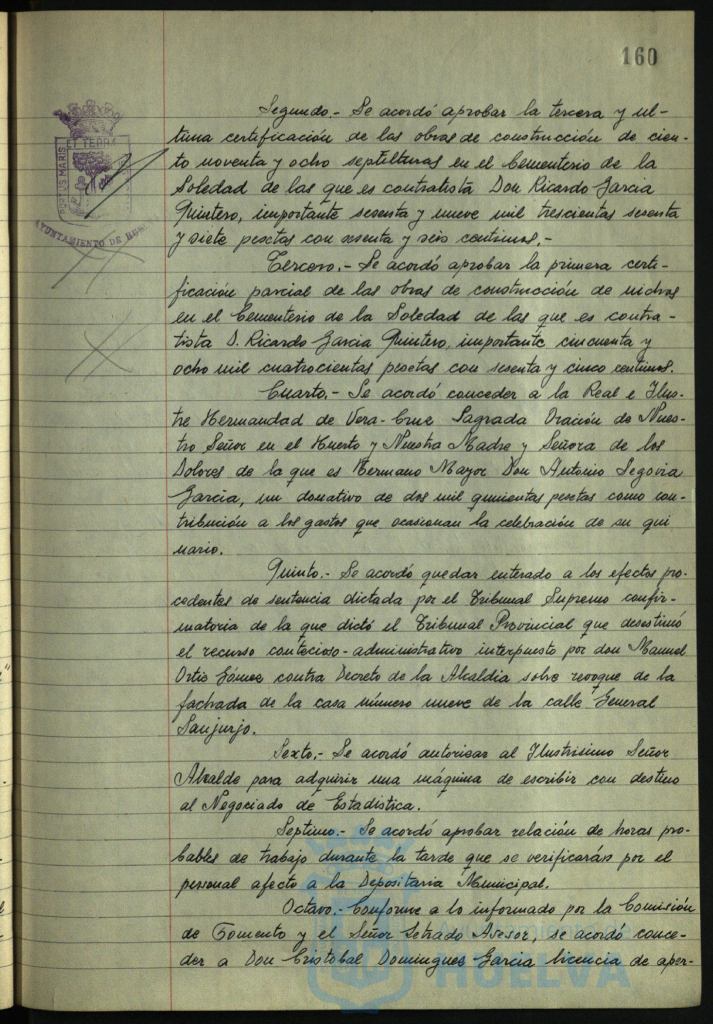 160
PORTUS MARIS
ET TERRÆ
AYUNTAMIENTO DE HUE
Segundo.- Se acordó aprobar la tercera y ul-
tima certificación de las obras de construcción de cien-
to noventa y ocho septilturas en el Cementerio de la
Soledad de las que es contratista Don Ricardo Garcia
Quintero, importante sesenta y nueve mil trescientas sesenta
y siete pesetas con sesenta y seis centimos.-
Tercero.- Se acordó aprobar la primera certi-
ficación parcial de las obras de construcción de nichos
en el Cementerio de la Soledad de las que es contra-
tista D. Ricardo Garcia Quintero, importante cincuenta y
ocho mil cuatrocientas pesetas con sesenta y cinco centimos.
Cuarto.- Se acordó conceder a la Real e Ilus-
tre Hermandad de Vera-Cruz Sagrada Oración de Nues-
tro Señor en el Huerto y Nuestra Madre y Señora de los
Dolores de la que es Hermano Mayor Don Antonio Segovia
Garcia, un donativo de dos mil quinientas pesetas como con-
tribución a los gastos que ocasionan la celebración de su qui
nario.
Quinto.- Se acordó quedar enterado a los efectos pro-
cedentes de sentencia dictada por el Tribunal Supremo confir-
matoria de la que dictó el Tribunal Provincial que desestimó
el recurso contecioso-administrativo interpuesto por don Manuel
Ortiz Gómez contra Decreto de la Alcaldia sobre revoque de la
fachada de la casa número nueve de la calle General
Sanjurjo.
Sexto.- Se acordó autorizar al Ilustrisimo Señor
Alcalde para adquirir una máquina de escribir con destino
al Negociado de Estadística.
Septimo.- Se acordó aprobar relación de horas pro-
bables de trabajo durante la tarde que se verificarán por el
personal afecto a la Depositaria Municipal.
Octavo.- Conforme a lo informado por la Comisión
de Fomento y el Señor Letrado Asesor, se acordó conce-
der a Don Cristobal Domingues Garcia licencia de aper-
HUELVA